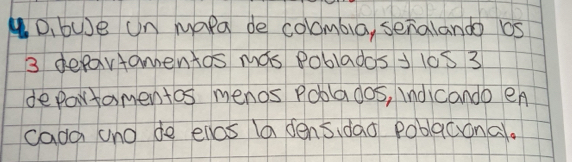 4. Dibuje un mapa de colombia, señalando los
3 departamentos más poblados y los 3
departamentos menos poblados, indicando en
cada uno de ellos la densidad poblacional.